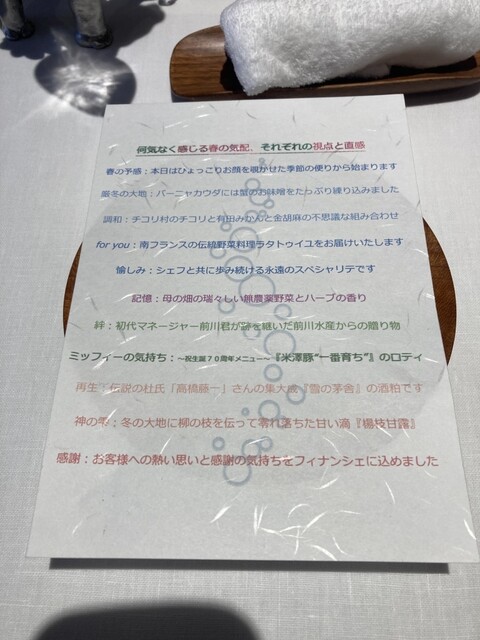 何気なく感じる春の気配、それぞれの視点と直感
春の予感：本日はひょっこりお顔を覗かせた季節の便りから始まります
厳冬の大地：バーニャカウダには蟹のお味噌をたっぷり練り込みました
調和：チコリ村のチコリと有田みかんと金胡麻の不思議な組み合わせ
for you：南フランスの伝統野菜料理ラタトゥイユをお届けいたします
愉しみ：シェフと共に歩み続ける永遠のスペシャリテです
記憶：母の畑の瑞々しい無農薬野菜とハーブの香り
絆：初代マネージャー前川君が跡を継いだ前川水産からの贈り物
ミッフィーの気持ち：～祝生誕７０周年メニュー～『米澤豚“一番育ち”』のロティ
再生：伝説の杜氏「高橋藤一」さんの集大成『雪の茅舎』の酒粕です
神の雫：冬の大地に柳の枝を伝って零れ落ちた甘い滴『楊枝甘露』
感謝：お客様への熱い思いと感謝の気持ちをフィナンシェに込めました